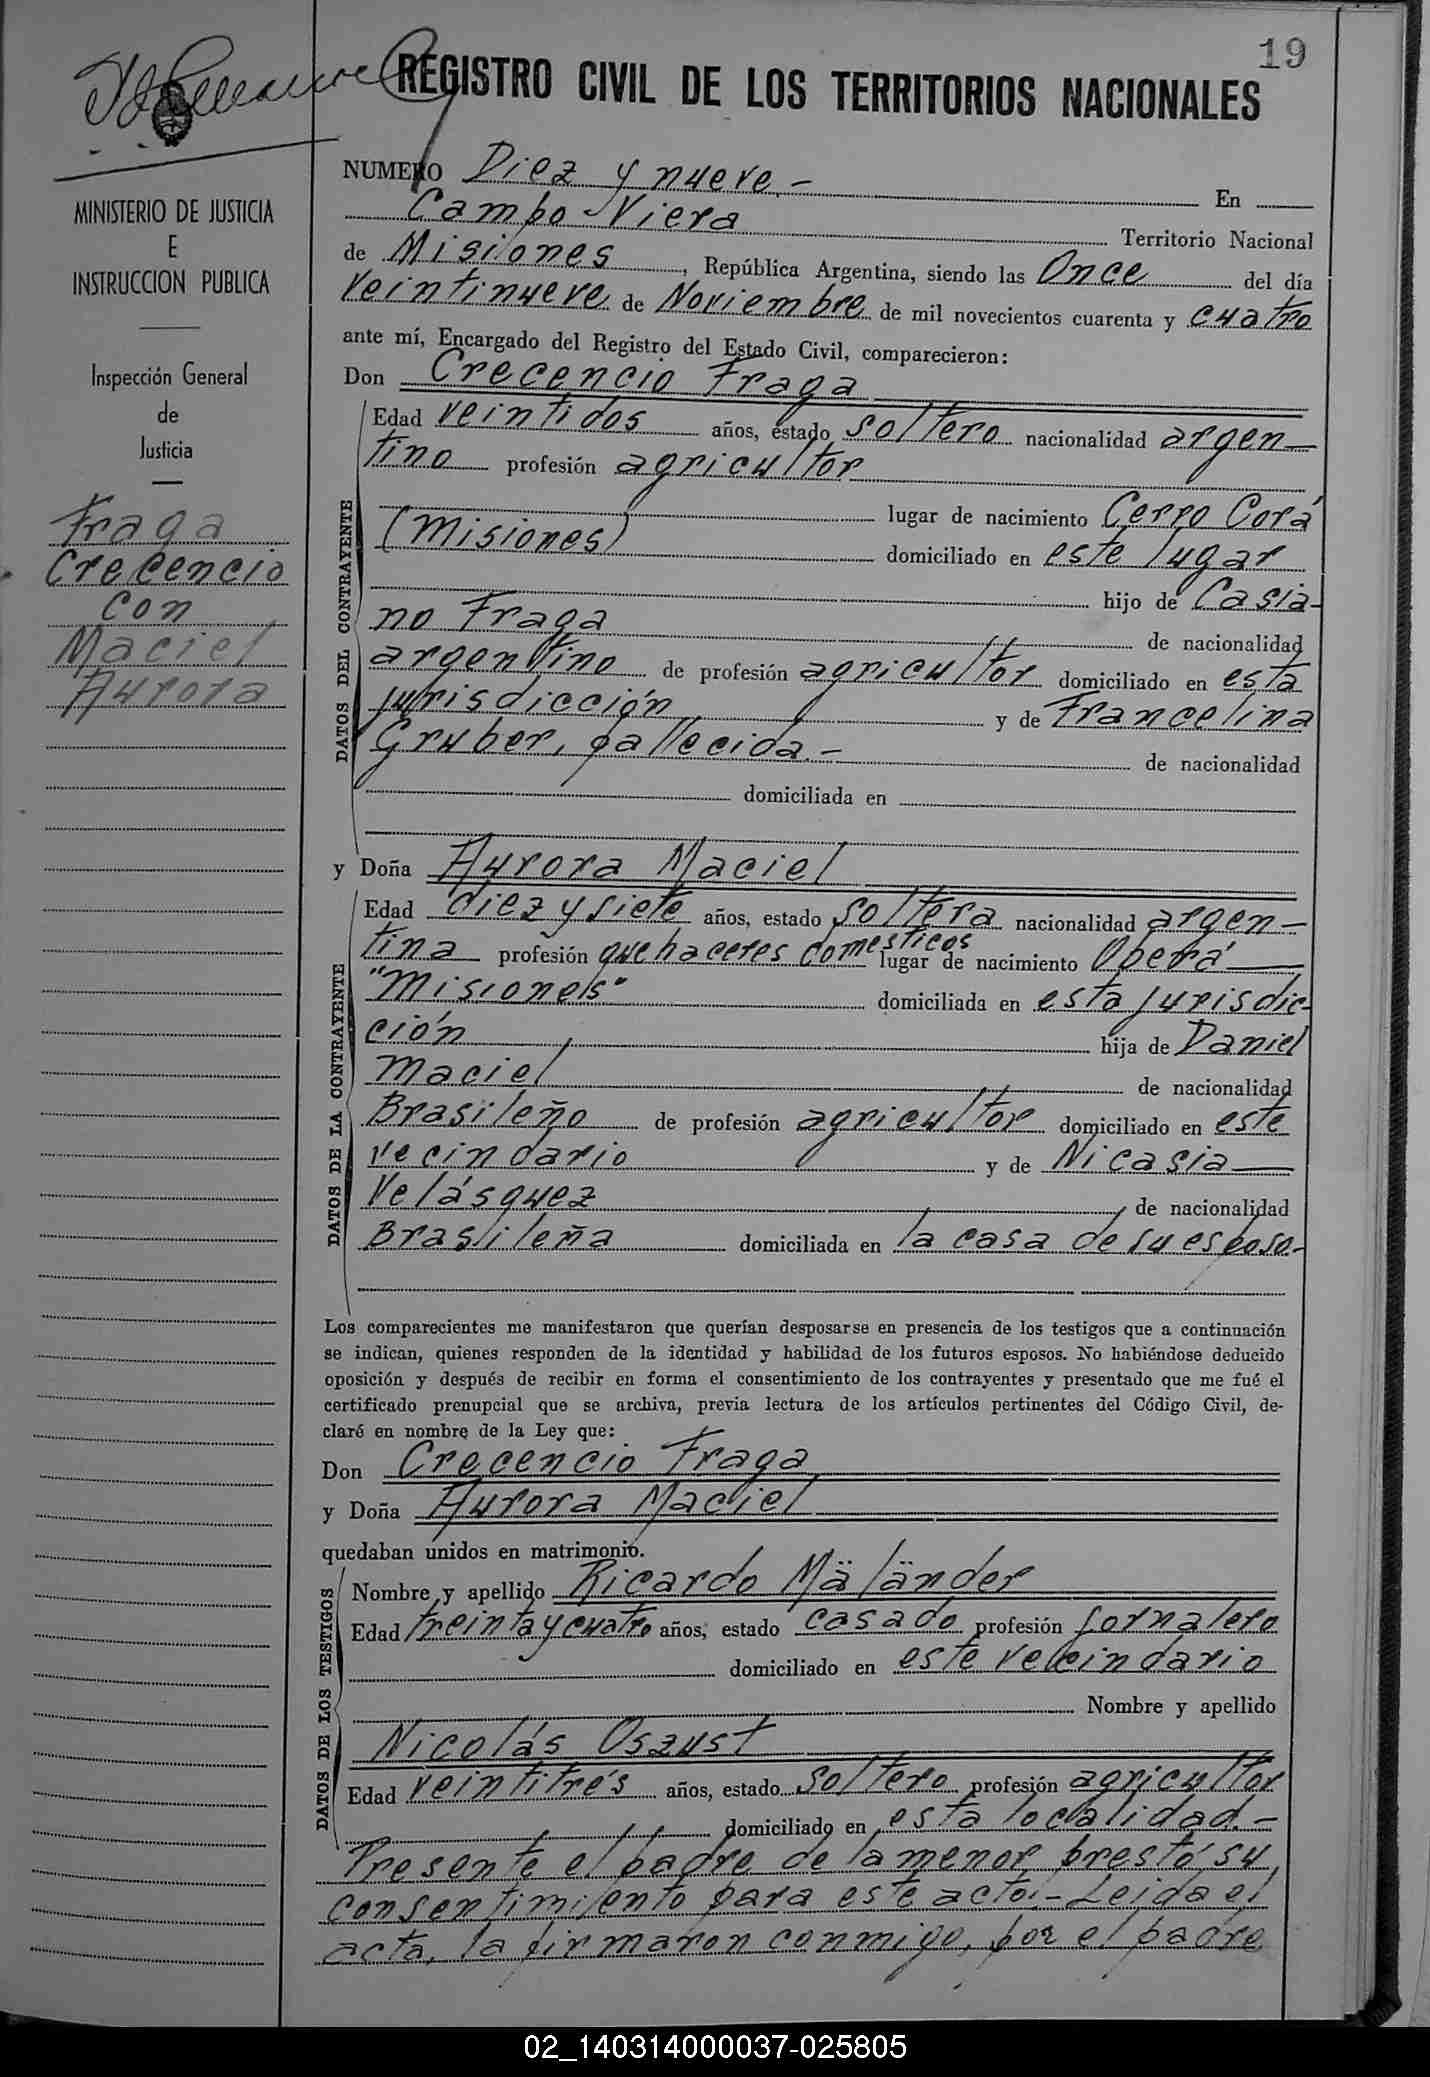 19
REGISTRO CIVIL DE LOS TERRITORIOS NACIONALES
MINISTERIO DE JUSTICIA
E
INSTRUCCION PUBLICA
Inspección General
de
Justicia
Fraga
Crecencio
con
Maciel
Aurora
NUMERO Diez y nueve.- En
Campo Viera Territorio Nacional
de Misiones, República Argentina, siendo las Once del día
veintinueve de Noviembre de mil novecientos cuarenta y cuatro
ante mí, Encargado del Registro del Estado Civil, comparecieron:
Don Crecencio Fraga
DATOS DEL CONTRAYENTE
Edad veintidos años, estado soltero nacionalidad argen-
tino profesión agricultor
lugar de nacimiento Cerro Corá
(Misiones) domiciliado en este lugar
hijo de Casia-
no Fraga de nacionalidad
argentino de profesión agricultor domiciliado en esta
jurisdicción y de Francelina
Gruber, fallecida.- de nacionalidad
domiciliada en
y Doña Aurora Maciel
DATOS DE LA CONTRAYENTE
Edad diez y siete años, estado soltera nacionalidad argen-
tina profesión quehaceres domesticos lugar de nacimiento Oberá
"Misiones" domiciliada en esta jurisdic-
ción hija de Daniel
Maciel de nacionalidad
Brasileño de profesión agricultor domiciliado en este
vecindario y de Nicasia
Velásquez de nacionalidad
Brasileña domiciliada en la casa de su esposo.-
Los comparecientes me manifestaron que querían desposarse en presencia de los testigos que a continuación
se indican, quienes responden de la identidad y habilidad de los futuros esposos. No habiéndose deducido
oposición y después de recibir en forma el consentimiento de los contrayentes y presentado que me fué el
certificado prenupcial que se archiva, previa lectura de los artículos pertinentes del Código Civil, de-
claré en nombre de la Ley que:
Don Crecencio Fraga
y Doña Aurora Maciel
quedaban unidos en matrimonio.
DATOS DE LOS TESTIGOS
Nombre y apellido Ricardo Mäländer
Edad treinta y cuatro años, estado casado profesión jornalero
domiciliado en este vecindario
Nombre y apellido
Nicolás Oszust
Edad veintitrés años, estado soltero profesión agricultor
domiciliado en esta localidad.-
Presente el padre de la menor prestó su
consentimiento para este acto.- Leida el
acta, la firmaron conmigo, por el padre
02_140314000037-025805